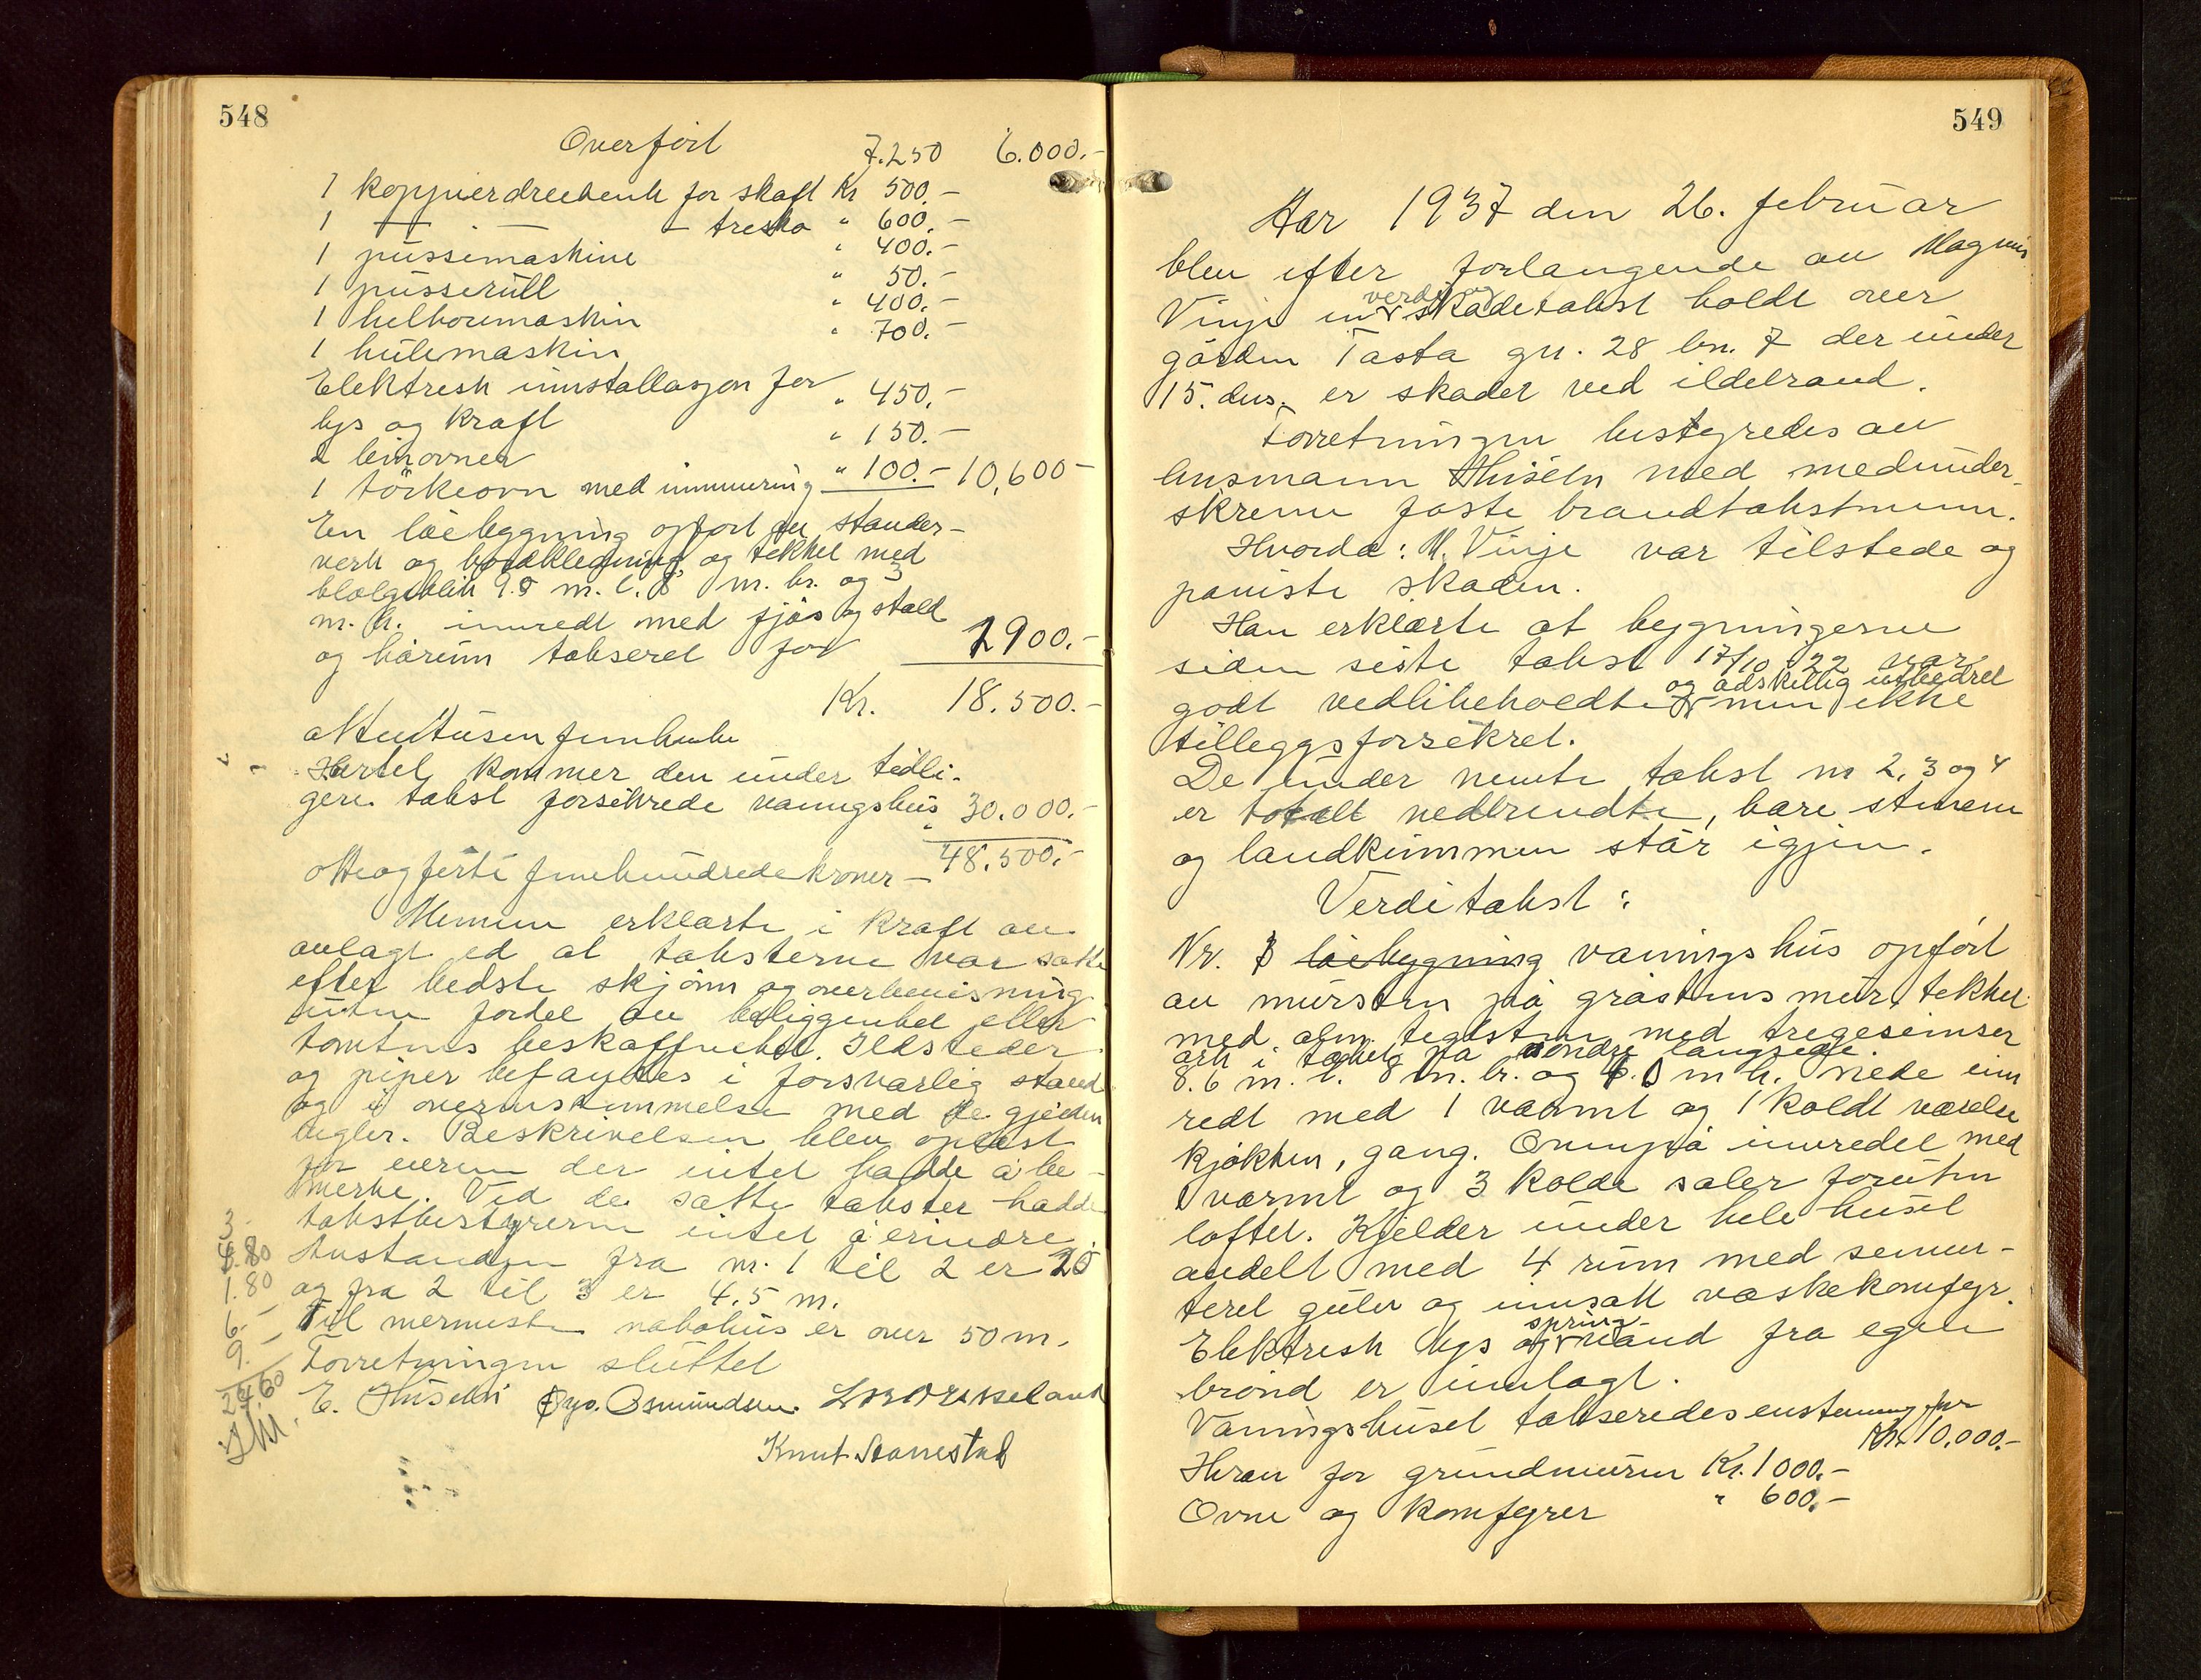 548
Overført 7.250 6.000.-
1 koppierdreebenk for skaft Kr 500.-
1 — " — - tresko " 600.-
1 pussemaskine " 400.-
1 pusserull " 50.-
1 helboremaskin " 400.-
1 hulemaskin " 700.-
Elektresk innstallasjon for
lys og kraft " 450.-
2 limovner " 150.-
1 törkeovn med inmuring " 100.- 10,600-
En löebyggning opfört av stander-
verk og bordkledning og tekket med
blølgeblik 9.5 m. l. 8 m. br. og 3
m. h. innredt med fjøs og stald
og hårum takseret for 1900.-
Kr. 18.500.-
Attentusenfemhundre
Hertil kommer den under tidli-
gere takst forsikrede vaaningshus " 30.000.-
48.500.-
otteogførti femhundredekroner -
Mennene erklærte i kraft av
avlagt ed at taksterne var satte
efter bedste skjønn og overbevisning
uten fordel av beliggenhet eller
tomtens beskaffenhet. Ildsteder
og piper befandtes i forsvarlig stand
og i overensstemmelse med de gjelden
regler. Beskrivelsen blev oplest
for eieren der intet hadde å be-
merke. Ved de satte takster hadde
takstbestyreren intet å erindre.
Avstanden fra nr. 1 til 2 er 20
og fra 2 til 3 er 4.5 m.
Til nermeste nabohus er over 50 m.
Forretningen sluttet
E. Thisen Osmundsen
Knut Størrestad
3.-
4.80
1.80
6.-
9.-
24.60
549
Aar 1937 den 26. februar
blev efter forlangende av Magnus
verdi og
Vinje en skadetakst holdt over
gården Tasta gn. 28 bn. 7 der under
15. dns. er skadet ved ildebrand.
Forretningen bestyredes av
lensmann Thisen med medunder-
skrevne faste brandtakstmenn.
Hvorda: M. Vinje var tilstede og
paaviste skaden.
Han erklærte at bygningerne
siden siste takst 17/10 - 22 var
og adskillig utbedret
godt vedlikeholdte men ikke
tilleggsforsikret.
De under nevnte takst nr 2, 3 og 4
er totalt nedbrendte, bare stenen
og landkummen står igjen.
Verditakst:
Nr. 1 löebygning vaningshus opført
av mursten på gråstens mur, tekket
med alm. teglsten med tregesimser
ark i taket på søndre langside
8.6 m. l. 8 m. br. og 6.0 m h. Nede inn
redt med 1 varmt og 1 koldt værelse
kjøkken, gang. Ovenpå innredet med
1 varmt og 3 kolde saler foruten
loftet. Kjelder under hele huset
avdelt med 4 rum med semen-
teret gulv og innsatt vaskekomfyr.
spring-
Elektresk lys og vand fra egen
brönd er innlagt.
Vaningshuset takseredes enstemmig for
Kr. 10.000.-
Herav for grundmuren Kr. 1000.-
Ovne og komfyrer " 600.-